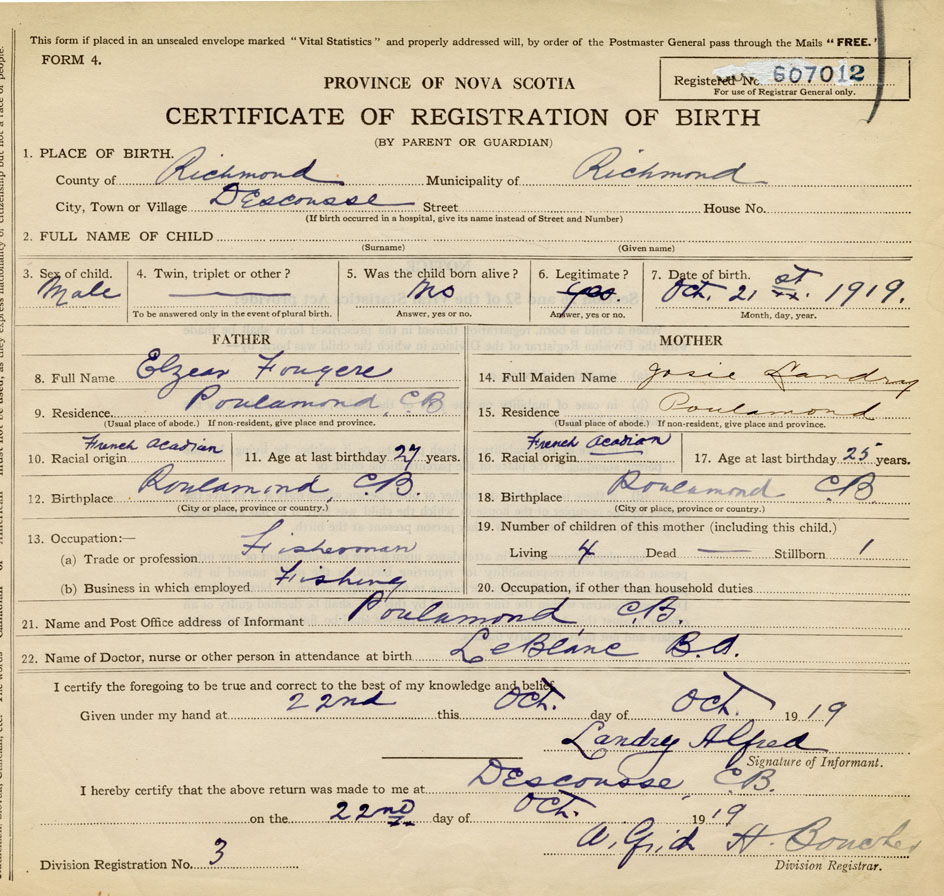 This form if placed in an unsealed envelope marked "Vital Statistics" and properly addressed will, by order of the Postmaster General pass through the Mails "FREE."
FORM 4.
Registered No. 607012
For use of Registrar General only.
PROVINCE OF NOVA SCOTIA
CERTIFICATE OF REGISTRATION OF BIRTH
(BY PARENT OR GUARDIAN)
1. PLACE OF BIRTH.
County of Richmond Municipality of Richmond
City, Town or Village DEscousse Street House No.
(If birth occurred in a hospital, give its name instead of Street and Number)
2. FULL NAME OF CHILD
(Surname) (Given name)
3. Sex of child. 4. Twin, triplet or other? 5. Was the child born alive? 6. Legitimate? 7. Date of birth.
Male No Yes Oct. 21st 1919.
To be answered only in the event of plural birth. Answer, yes or no. Answer, yes or no. Month, day, year.
FATHER MOTHER
8. Full Name Elzear Fougere
14. Full Maiden Name Josie Landry
9. Residence. Poulamond, C.B
15. Residence Poulamond
(Usual place of abode.) If non-resident, give place and province.
(Usual place of abode.) If non-resident, give place and province.
10. Racial origin French Acadian 11. Age at last birthday 27 years.
16. Racial origin French Acadian 17. Age at last birthday 25 years.
12. Birthplace Poulamond, C.B.
18. Birthplace Poulamond C.B
(City or place, province or country.)
(City or place, province or country.)
13. Occupation:—
(a) Trade or profession Fisherman
(b) Business in which employed Fishing
19. Number of children of this mother (including this child.)
Living 4 Dead — Stillborn 1
20. Occupation, if other than household duties
21. Name and Post Office address of Informant Poulamond C.B.
22. Name of Doctor, nurse or other person in attendance at birth LeBlanc B.A.
I certify the foregoing to be true and correct to the best of my knowledge and belief.
Given under my hand at 22nd this Oct. day of Oct. 1919
Landry Alfred
Signature of Informant.
I hereby certify that the above return was made to me at DEscousse, C.B.
on the 22nd day of Oct. 1919
H. Boucher
Division Registration No. 3
Division Registrar.